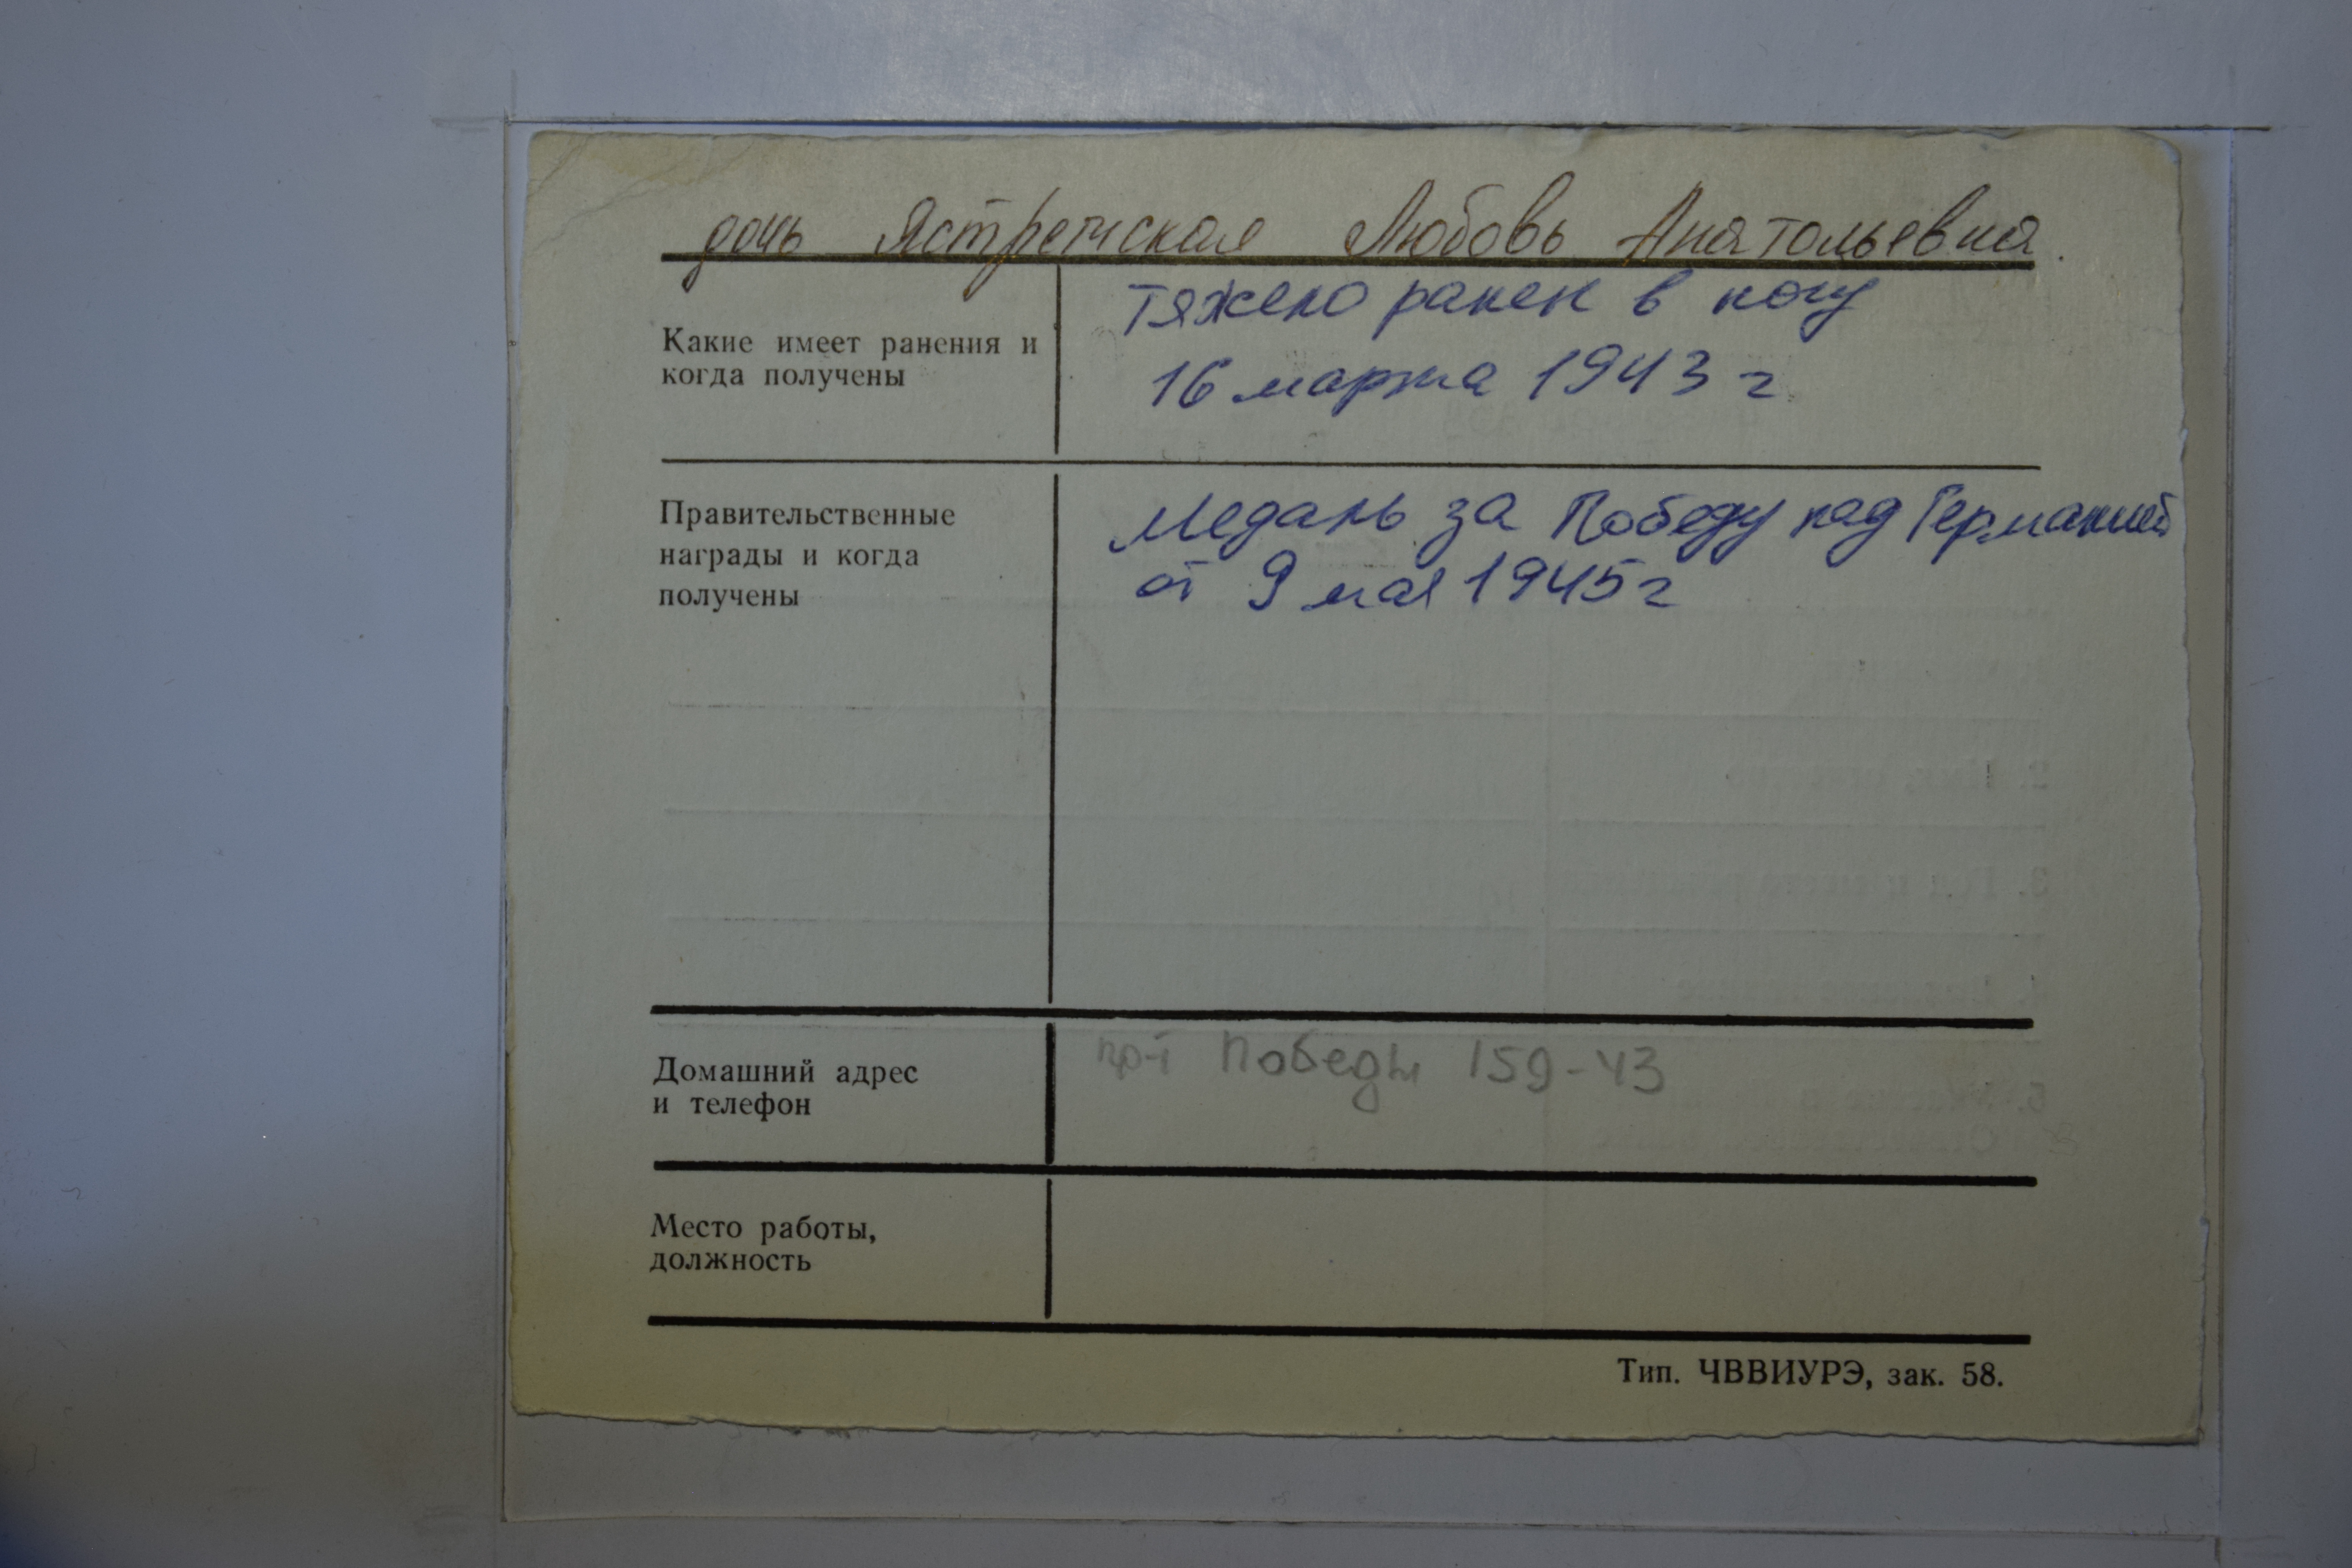 дочь Ястремская Любовь Анатольевна.
Какие имеет ранения и
когда получены
тяжело ранен в ногу
16 марта 1943 г
Правительственные
награды и когда
получены
Медаль за Победу над Германией
от 9 мая 1945 г
Домашний адрес
и телефон
пр-т Победы 159-43
Место работы,
должность
Тип. ЧВВИУРЭ, зак. 58.